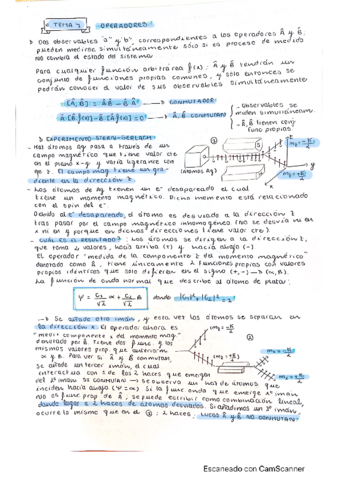 TEMA 7 OPERADORES
→ Dos observables "a" y "b", correspondientes a los operadores Â y B̂,
pueden medirse simultáneamente sólo si el proceso de medida
no cambia el estado del sistema
Para cualquier función arbitraria f(x); Â y B̂ tendrán un
conjunto de funciones propias comunes, y solo entonces se
podrán conocer el valor de sus observables simultáneamente
[Â,B̂] = ÂB̂ - B̂Â → CONMUTADOR
→ Â, B̂ CONMUTAN
- observables se
miden simultáneam.
- Â, B̂ tienen conj
func propias
EXPERIMENTO STERN-GERLACH
- Haz átomos Ag pasa a través de un
campo magnético que tiene valor cte
en el plano x-y y varía ligeramente con
eje z. El campo mag tiene un gra-
diente en la dirección z
(átomos Ag)
- Los átomos de Ag tienen un e⁻ desapareado el cual
tiene un momento magnético. Dicho momento está relacionado
con el spin del e⁻
Debido al e⁻ desapareado, el átomo es desviado a la dirección z
tras pasar por el campo magnético inhomogéneo (no se desvía ni en
x ni en y porque en dichas direcciones tiene valor cte)
- ¿CUÁL ES EL RESULTADO?: Los átomos se dirigen a la dirección z,
que toma 2 valores, hacia arriba (↑) y hacia abajo (-)
El operador "medida de la componente z del momento magnético"
denotado como Â, tiene únicamente 2 funciones propias con valores
propios idénticos que solo difieren en el signo (+,-) → (α, β)
La función de onda normal que describe al átomo de plata:
donde
→ Se añade otro imán, y esta vez los átomos se separan en
la dirección x. El operador ahora es
"medir componente x del momento mag"
denotado por B̂. Tiene dos func y los
mismos valores prop. que anteriormente
α y β. Para ver si Â y B̂ conmutan,
se añade un tercer imán, el cual
interactúa con 1 de los 2 haces que emerge
del 2º imán. SE CONMUTAN → se observa un haz de átomos que
inciden hacia abajo (Ψ = α). Si la func onda que emerge 2º imán
no es func prop de Â, se puede escribir como combinación lineal,
dando lugar a 2 haces de átomos desviados. Si añadimos un 3º imán,
ocurre lo mismo que en el ①; 2 haces, luego Â y B̂ NO CONMUTAN
Escaneado con CamScanner